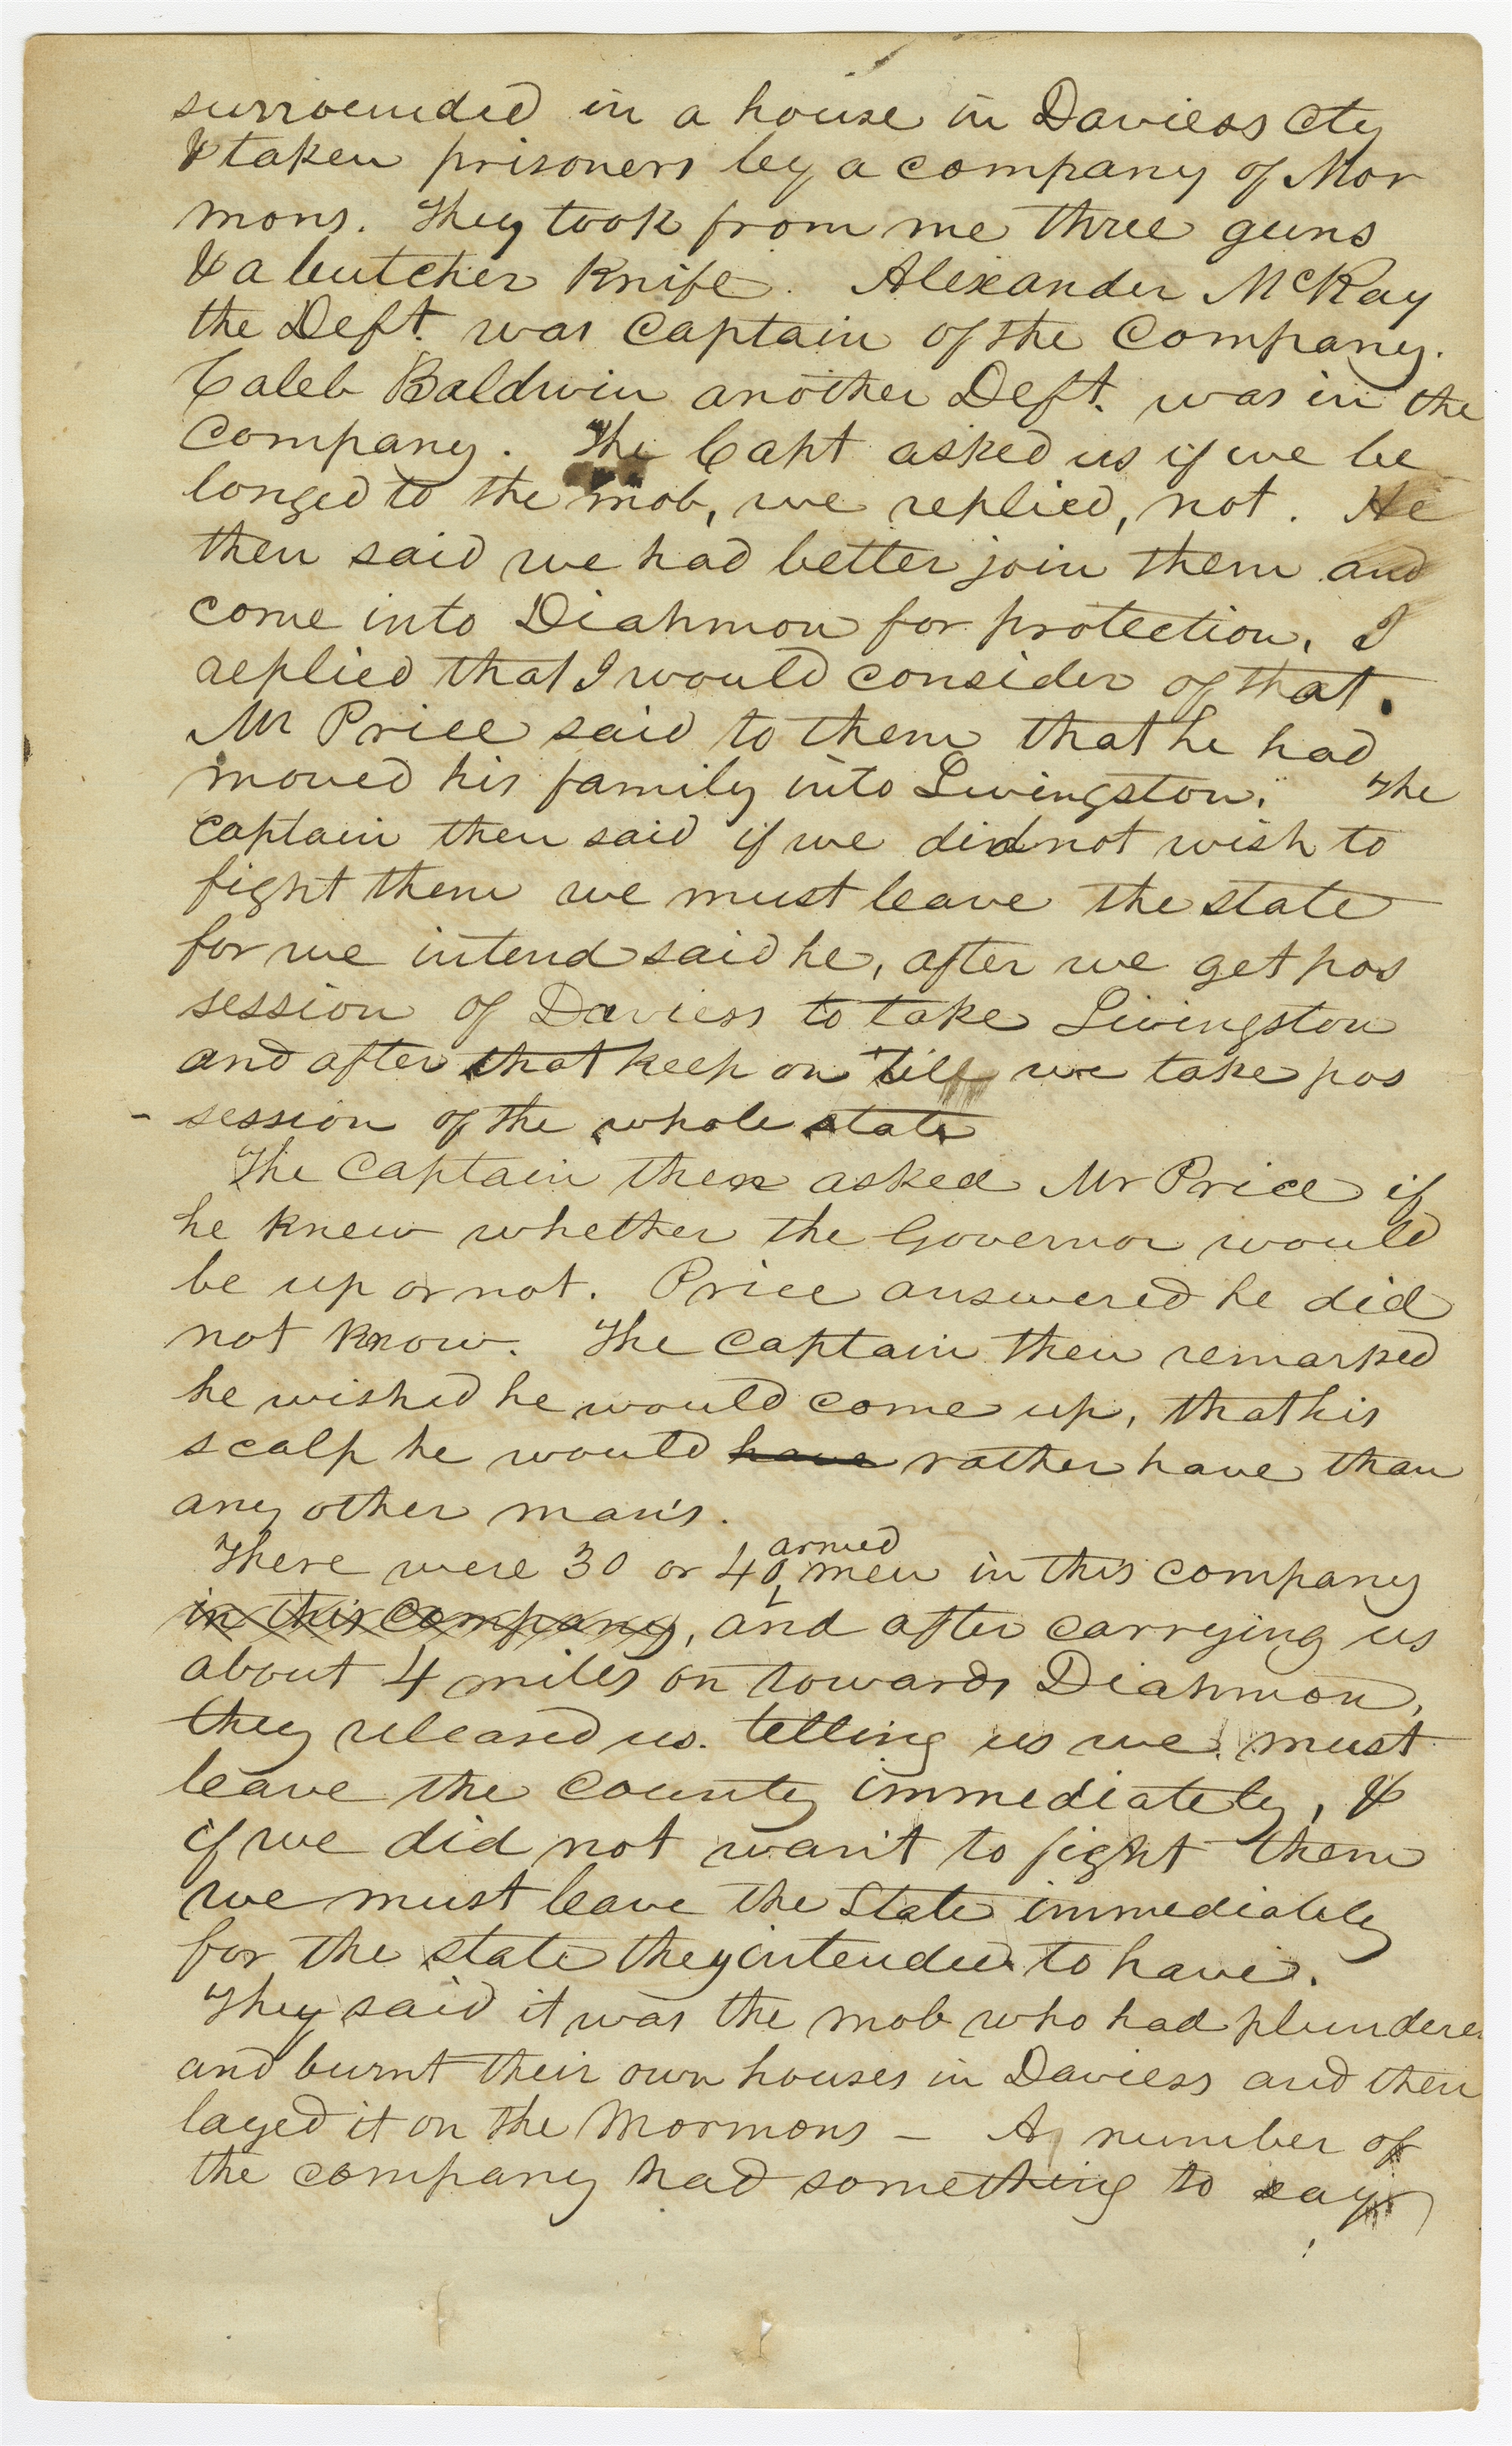 surrounded in a house in Daviess Cty
& taken prisoners by a company of Mor
mons. They took from me three guns
& a butcher knife. Alexander McRay
the Deft. was Captain of the Company.
Caleb Baldwin another Deft. was in the
Company. The Capt asked us if we be
longed to the mob, we replied, not. He
then said we had better join them and
come into Diahmon for protection, I
replied that I would consider of that.
Mr Price said to them that he had
moved his family into Livingston. The
Captain then said if we did not wish to
fight them we must leave the state
for we intend said he, after we get pos
session of Daviess to take Livingston
and after that keep on till we take pos
- session of the whole state
The Captain then asked Mr Price if
he knew whether the Governor would
be up or not. Price answered he did
not know. The Captain then remarked
he wished he would come up, that his
scalp he would have rather have than
any other man's.
armed
There were 30 or 40 men in this company
in this company, and after carrying us
about 4 miles on towards Diahmon,
they released us. telling us we must
leave the county immediately, &
if we did not wan't to fight them
we must leave the State immediately
for the state they intended to have.
They said it was the mob who had plundered
and burnt their own houses in Daviess and then
layed it on the Mormons - A number of
the company had something to say